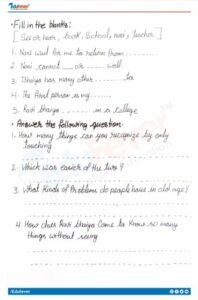 Edufever
• Fill in the blanks:
[See or hear, look, School, novi, teacher]
1. Novi wait for me to return from
2. Novi cannot or well.
3. Bhaiya has many other to
4. The first person is my
5. Ravi bhaiya in a college
• Answer the following question:
1. How many things can you recognize by only
touching
2. Which was easier of the two?
3. What Kinds of Problem do people have in old age?
4. How does Ravi bhaiya Come to Know so many
things without seeing
/Edufever